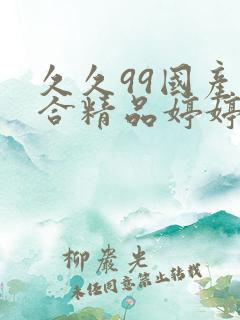 久久99国产
合精品婷婷
柳岩光
未经同意禁止转载